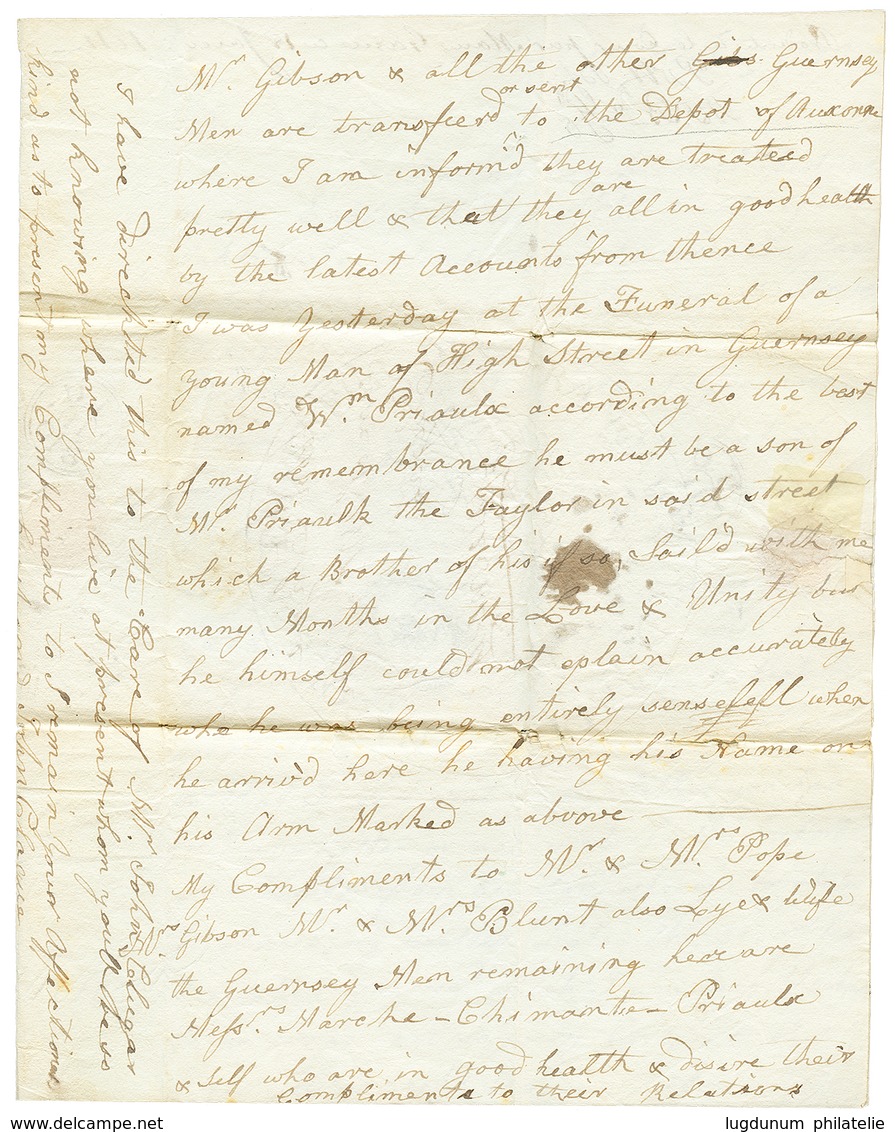 Mr. Gibson & all the other Guernsey
or sent
Men are transferd to the Depot of Auxonne
where I am inform'd they are treateed
are
pretty well & that they all in good health
by the latest Accounts from thence
I was Yesterday at the Funeral of a
young Man of High Street in Guernsey
named Wm Priaulx according to the best
of my remembrance he must be a son of
Mr. Priaulx the Taylor in said street
which a Brother of his if so, Sail'd with me
many Months in the Love & Unity but
he himself could not eplain accurately
who he was being entirely sensefell when
he arriv'd here he having his Name on
his Arm Marked as above
My Compliments to Mr. & Mrs Pope
Mrs Gibson Mr. & Mrs Blunt also Lye & Wife
the Guernsey Men remaining here are
Messrs. Marche - Chimante - Priaulx
& Self who are in good health & disire their
Compliments to their Relations
I have directed this to the Care of Mr John Lugar
not knowing where you live at present whom youll be so
kind as to present my Compliments to I remain Your Affectionate
John
www.delcampe.net
lugdunum philatelie